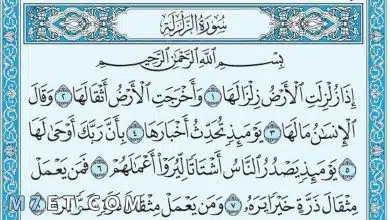 سُورَةُ الزَّلْزَلَةِ
بِسْمِ اللَّهِ الرَّحْمَٰنِ الرَّحِيمِ
إِذَا زُلْزِلَتِ الْأَرْضُ زِلْزَالَهَا ١ وَأَخْرَجَتِ الْأَرْضُ أَثْقَالَهَا ٢ وَقَالَ
الْإِنسَانُ مَا لَهَا ٣ يَوْمَئِذٍ تُحَدِّثُ أَخْبَارَهَا ٤ بِأَنَّ رَبَّكَ أَوْحَىٰ لَهَا
٥ يَوْمَئِذٍ يَصْدُرُ النَّاسُ أَشْتَاتًا لِّيُرَوْا أَعْمَالَهُمْ ٦ فَمَن يَعْمَلْ
مِثْقَالَ ذَرَّةٍ خَيْرًا يَرَهُ ٧ وَمَن يَعْمَلْ مِثْقَالَ
MZET.COM